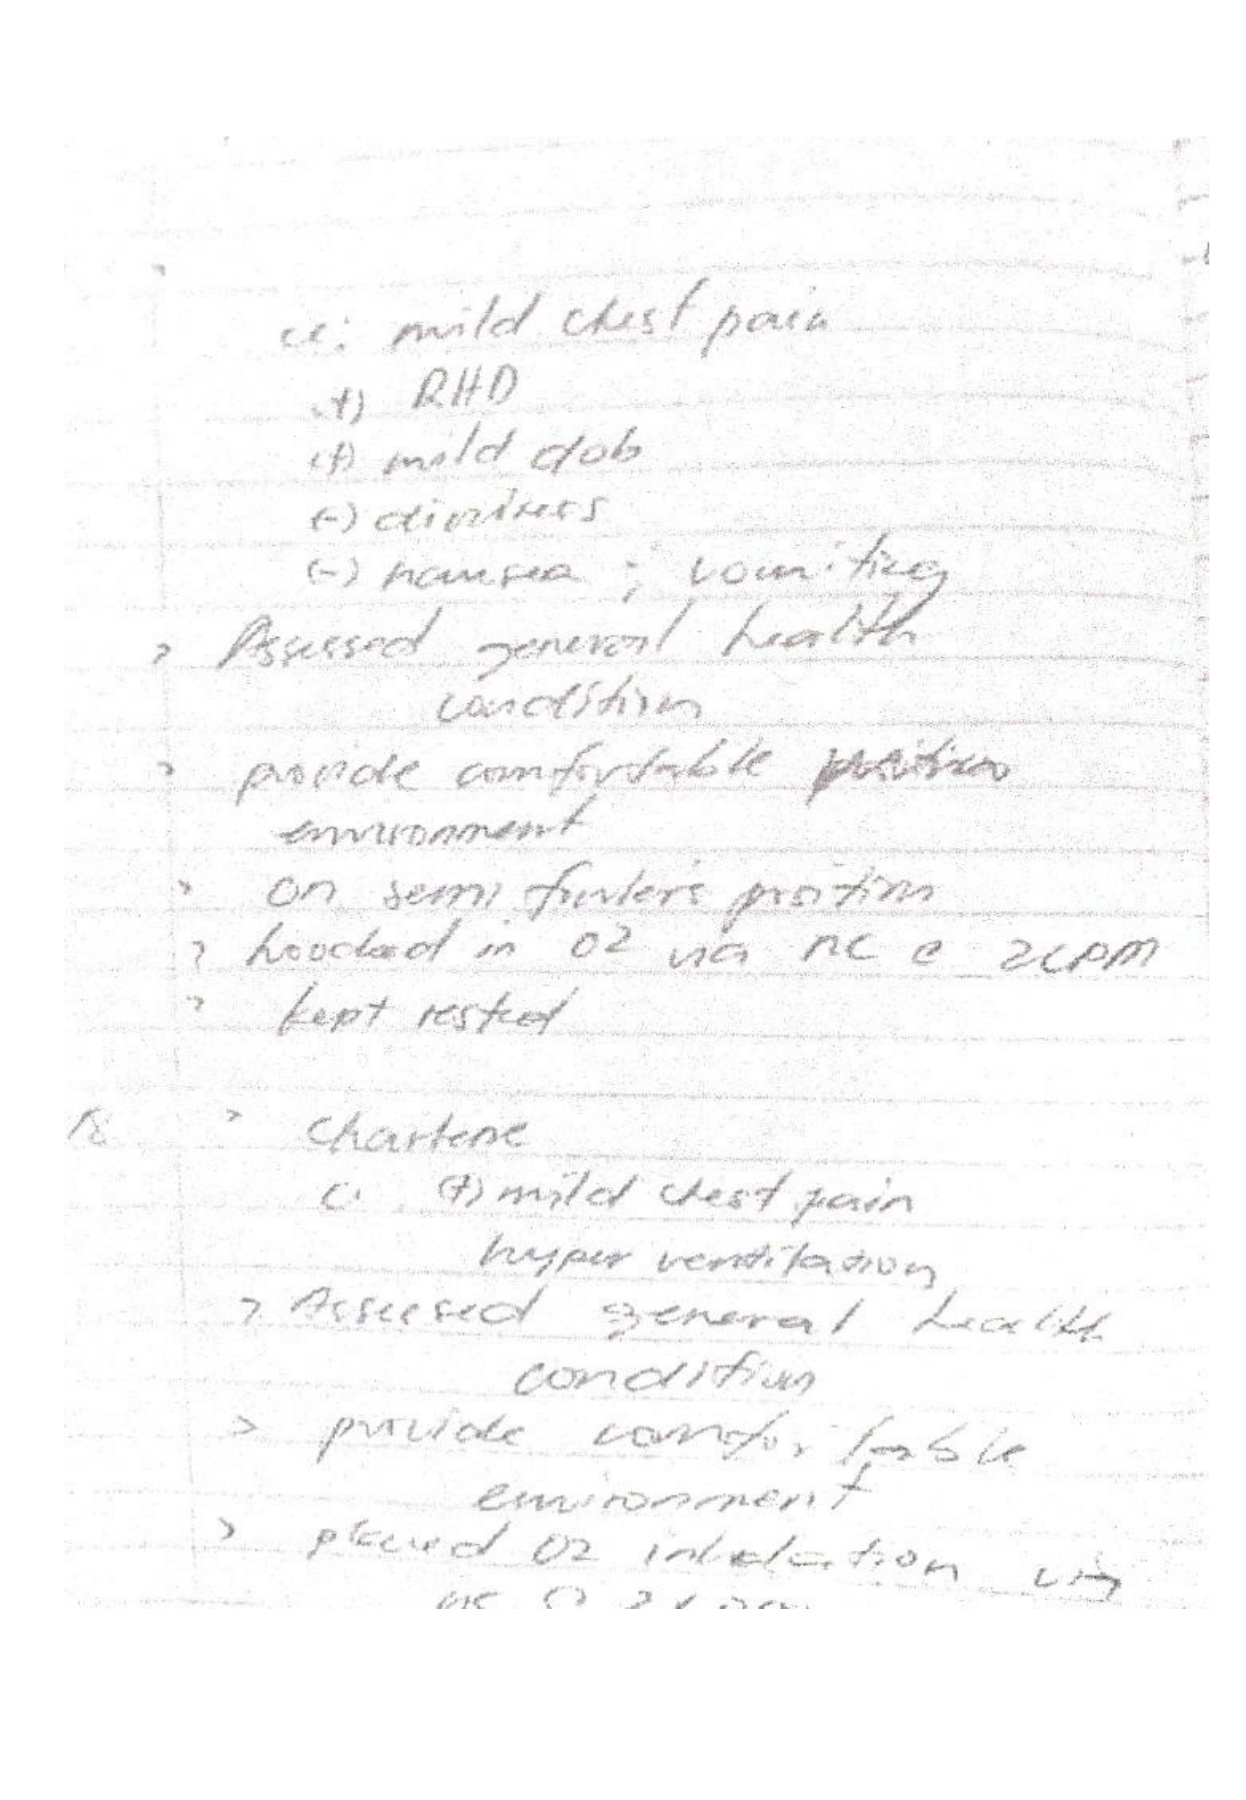 cc: mild chest pain
(+) RHD
(+) mild dob
(-) dizziness
(-) nausea ; vomiting
> Assessed general health
condition
> provide comfortable position
environment
> on semi fowlers position
> hoocked in O2 via NC @ 2LPM
> kept rested
> Charlene
C: (+) mild chest pain
hyper ventilation
> Assessed general health
condition
> provide comfortable
environment
> placed O2 inhalation via